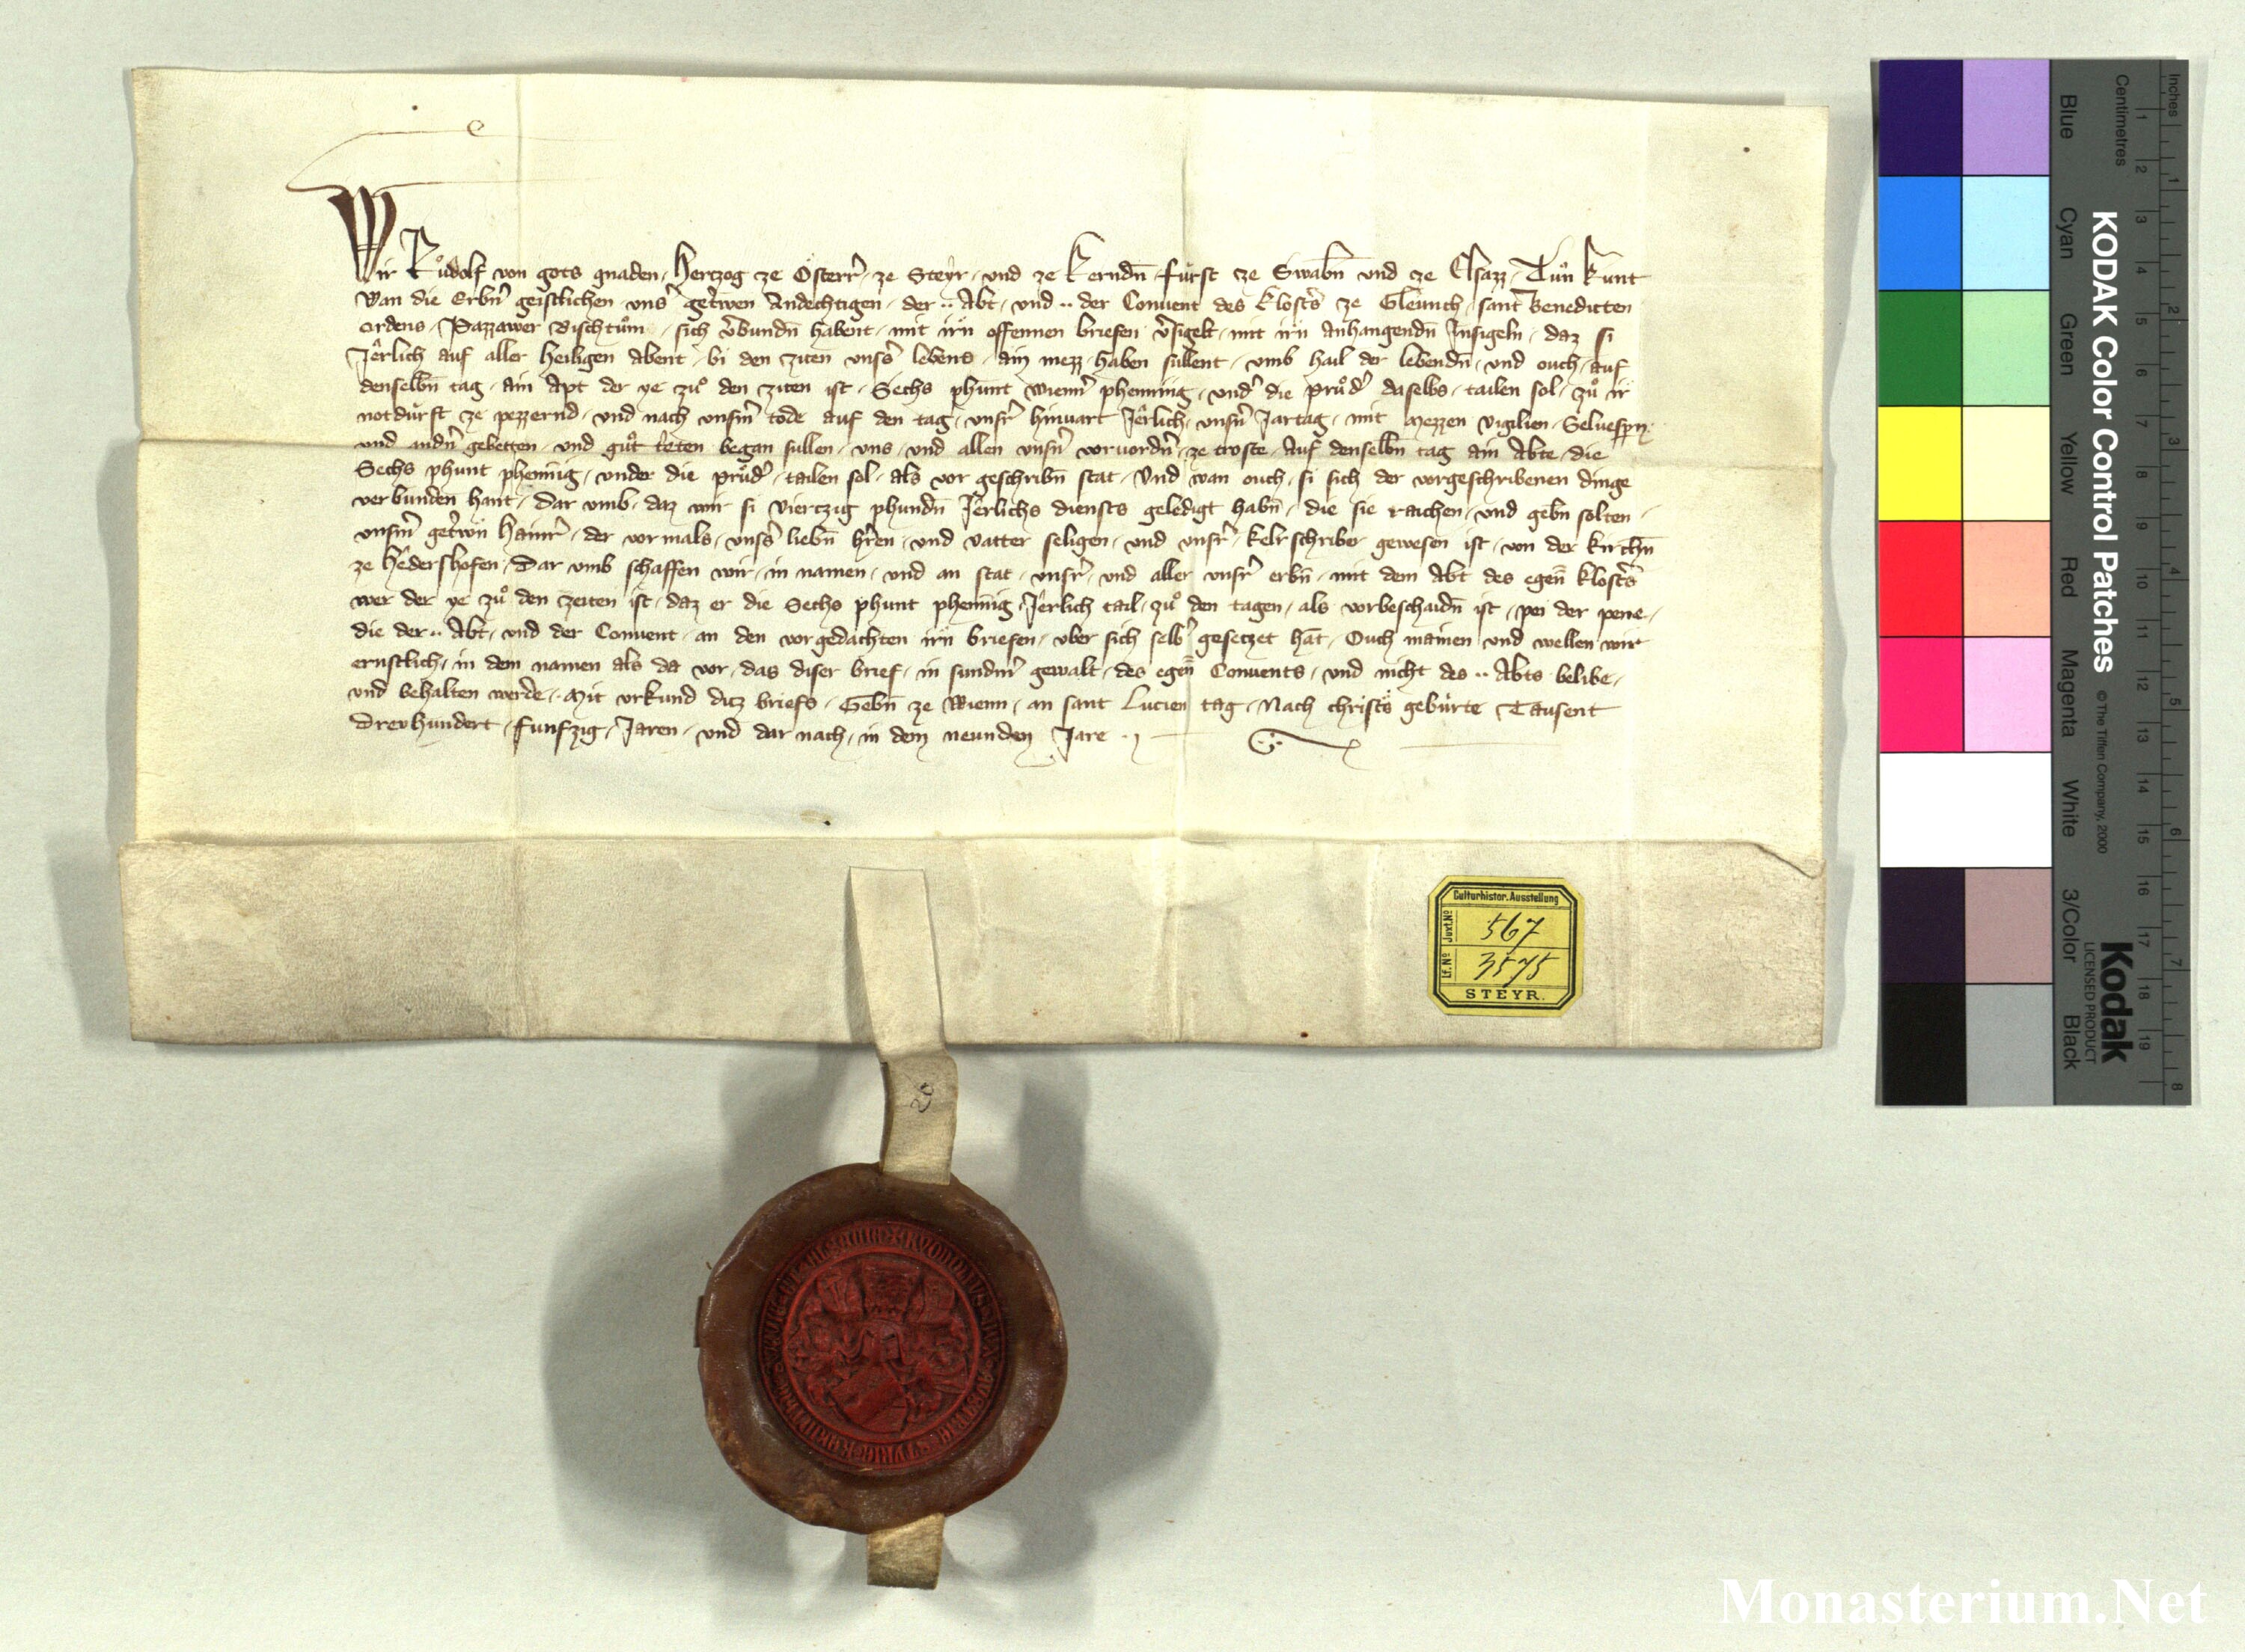 Wir Růdolf von gots gnaden, Hertzog ze Österr̄, ze Steyr, und ze Kerndn̄ fürst ze Swabn̄ und ze Elsazz, Tůn kunt
Wan die Erbn̄ geistlichen uns̄ getrewen Andechtigen, der .. Abt, und .. der Conuent des klost̄s ze Gleunch, sant Benedicten
ordens, Pazzawer Bischtům, sich v̄bundn̄ habent, mit irn̄ offennen briefen v̄sigelt, mit irn̄ anhangendn̄ Insigeln, daz si
Jêrlich auf aller heiligen Abent, bi den ziten unss̄ lebens, ain mezz haben sullent, umb hail der lebendn̄, und ouch, auf
denselbn̄ tag, ain Apt der ye zuͦ den ziten ist, Sechs phunt wienn̄ phenning, und̄ die průd̄ daselbs, tailen sol, zuͦ ir
notdurft ze pezzernd, und nach unsm̄ tode auf den tag, unsr̄ hinuart Jêrlich, unsn̄ Jartag, mit Mezzen vigilien, Seluespn̄
und andn̄ gebetten, und gůt teten began sullen, uns, und allen unsn̄ voruordn̄, ze troste, Auf denselbn̄ tag ain Abte, die
Sechs phunt phennig, under die průd̄, tailen sol, als vor geschribn̄ stat, Und wan ouch, si sich der vorgeschribenen dinge
verbunden hant, dar umb, daz wir si viertzig phundn̄ Jêrlichs diensts geledigt habn̄, die sie raichen, und gebn̄ solten,
unsm̄ getrwn̄ Hainr̄, der vormals, unss̄ liebn̄ hr̄en, und vatter seligen, und unsr̄, kelr̄schriber gewesen ist, von der kirchn̄
ze Hêdershofen, Dar umb schaffen wir, in namen, und an stat, unsr̄, und aller unsr̄ erbn̄, mit dem Abt des egen̄ klost̄s
wer der ye zuͦ den zeiten ist, daz er die Sechs phunt phennig, Jêrlich tail, zuͦ den tagen, als vorbeschaidn̄ ist, pei der pene,
die der .. Abt, und der Conuent, an den vorgedachten irn̄ briefen, uber sich selb̄ gesetzet hat, Ouch mainen und wellen wir
ernstlich, in dem namen als da vor, das diser brief, in sundm̄ gewalt, des egen̄ Conuents, und nicht des .. Abts belibe,
und behalten werde, Mit urkund ditz briefs, Gebn̄ ze Wienn, an sant Lucien tag, Nach christs̄ gebůrte Tausent
Drevhundert, funfzig, Jaren, und dar nach, in dem neunden Jare
Culturhistor. Ausstellung
Juxt.No 567
Lf. No 3575
STEYR.
Inches
Centimetres
KODAK Color Control Patches © The Tiffen Company, 2000
Kodak
LICENSED PRODUCT
Blue Cyan Green Yellow Red Magenta White 3/Color Black
1 2 3 4 5 6 7 8 9 10 11 12 13 14 15 16 17 18 19
1 2 3 4 5 6 7 8
Monasterium.Net